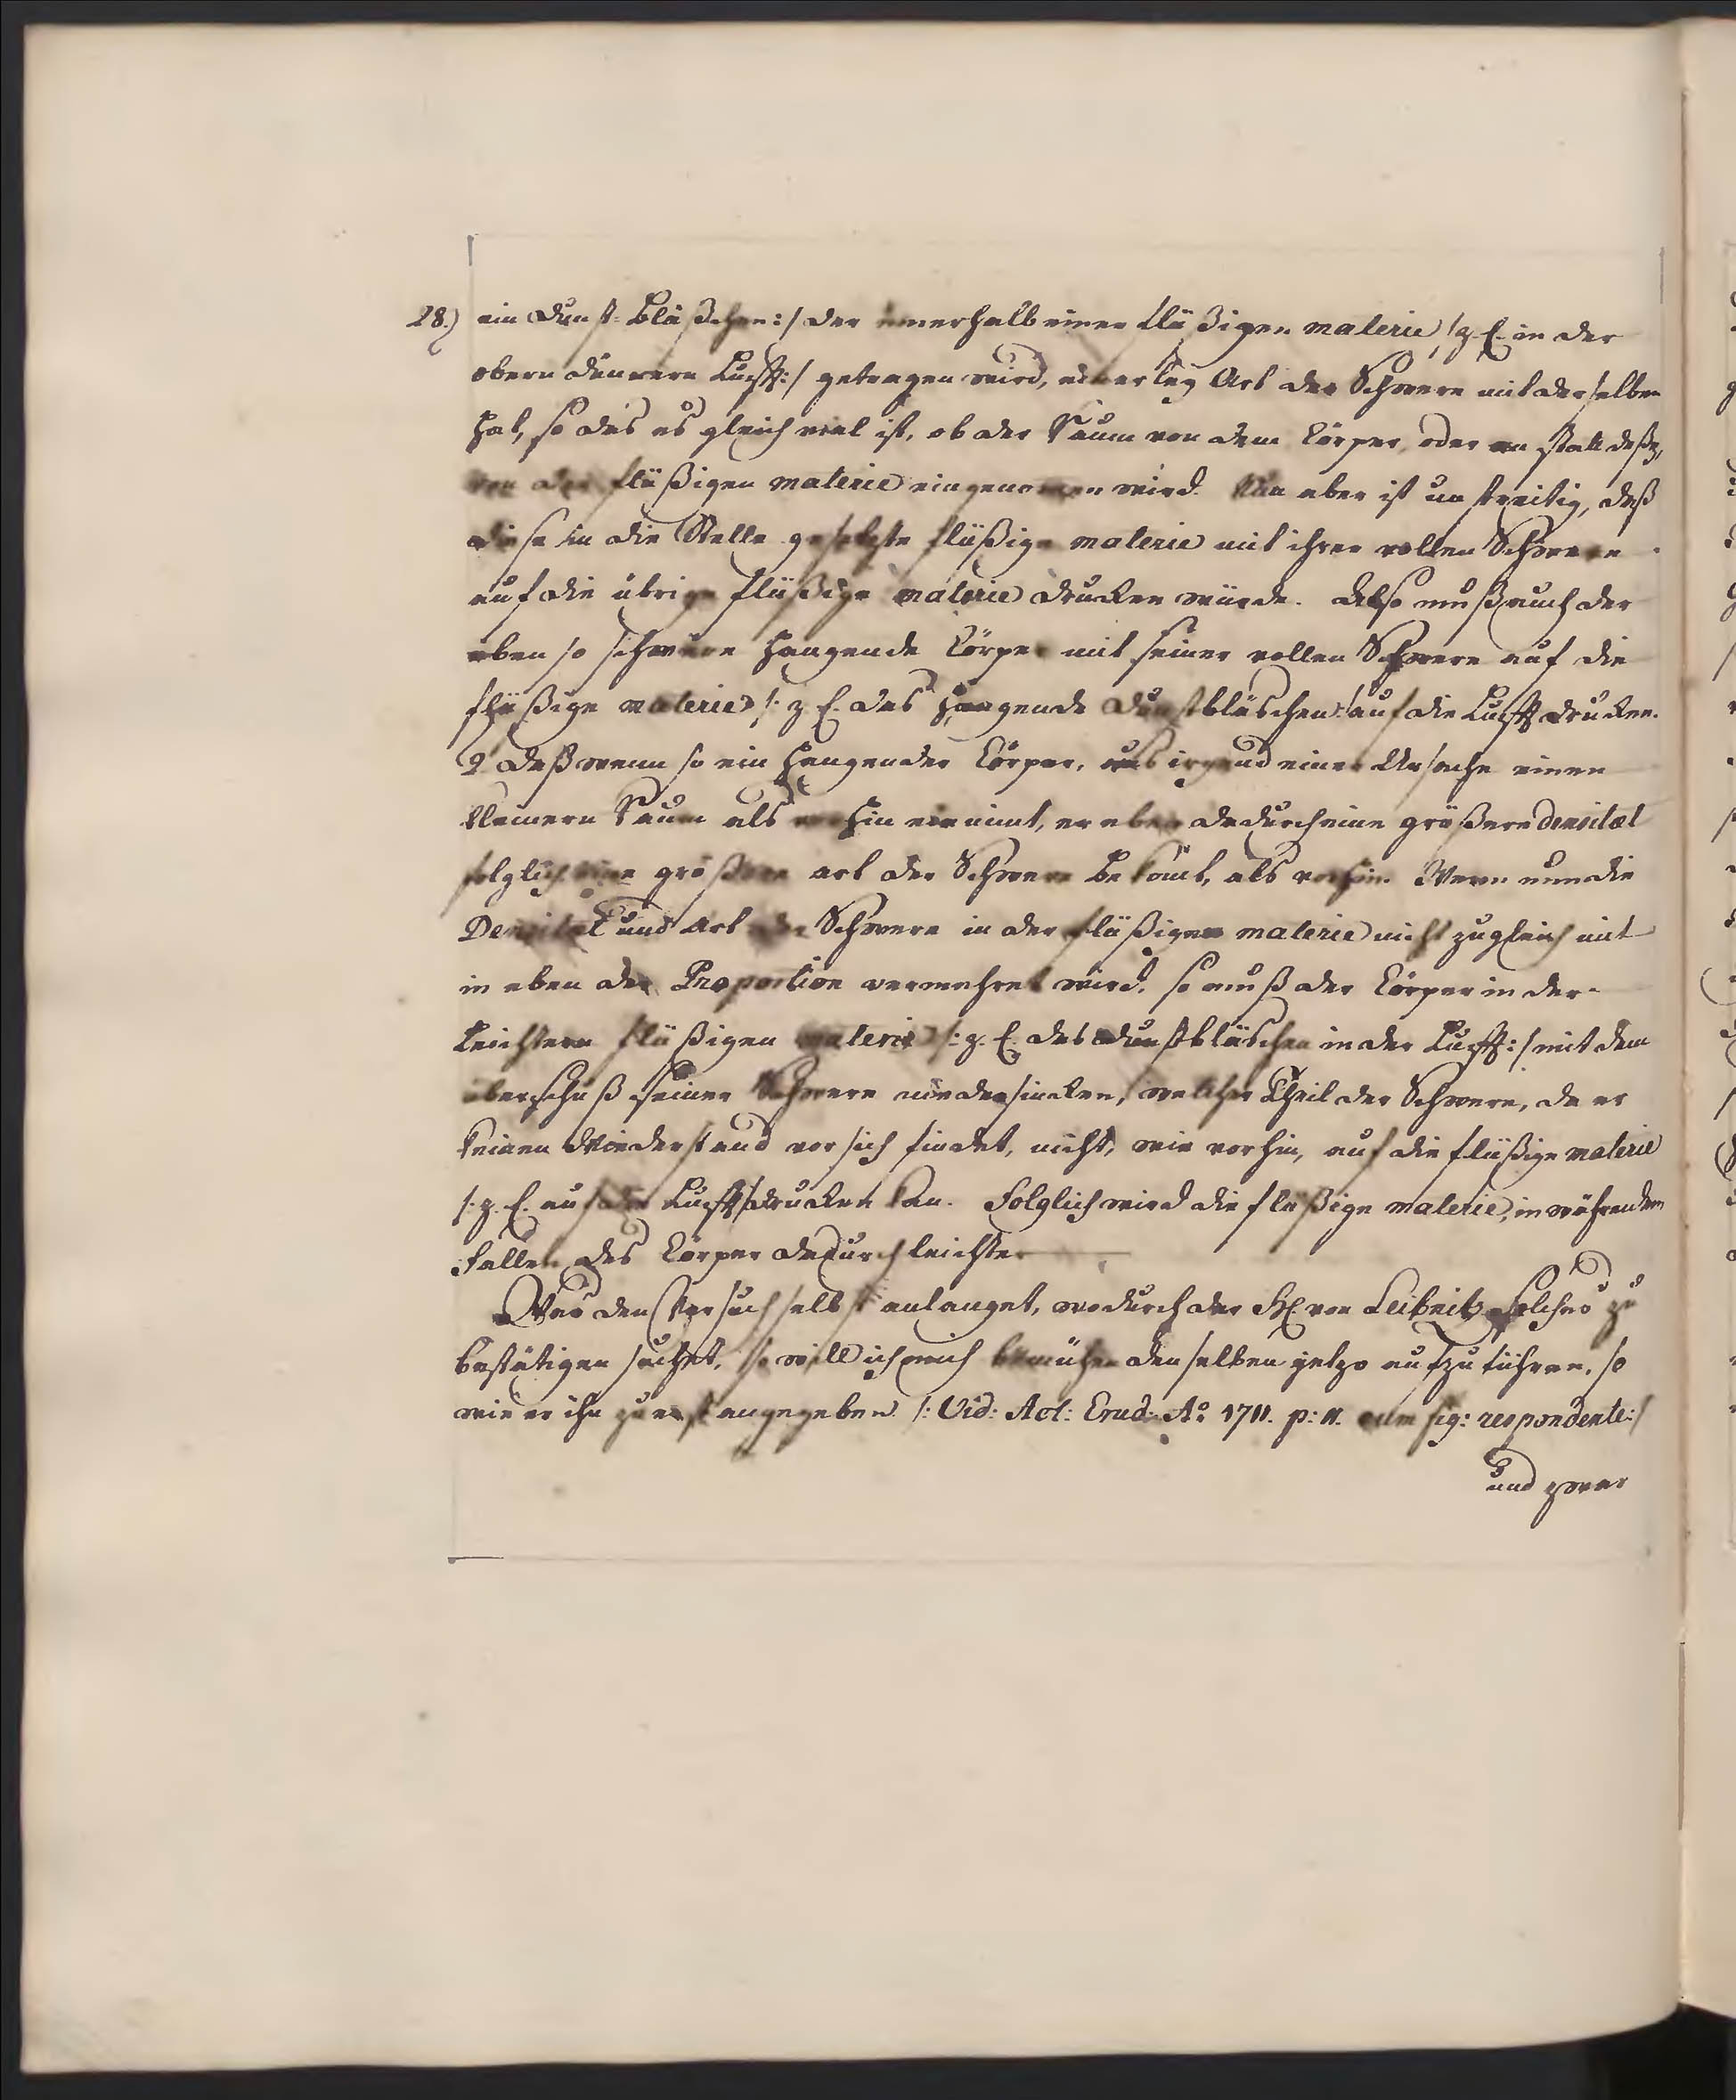 28.) ein Dunst-Bläßchen:/ der innerhalb einer flüßigen materie, /:z. E. in der
obern dünnern Lufft:/ getragen wird, einerley Art der Schwere mit derselben
hat, so das es gleich viel ist, ob der Raum von dem Cörper, oder an statt deßen,
von der flüßigen materie eingenomen wird. Nun aber ist unstreitig, daß
diese in die Stelle gesetzte flüßige materie mit ihrer vollen Schwere
auf die übrige flüßige materie drucken würde. Also muß auch der
eben so schwere hangende Cörper mit seiner vollen Schwere auf die
flüßige materie /: z. E. das hangende Dunstbläschen:/ auf die Lufft drucken.
2. Daß wenn so ein hangender Cörper, aus irgend einer Ursache einen
kleinern Raum als vorhin einnimt, er eben dadurch eine größere densitæt
folglich eine größere art der Schwere bekömt, als vorhin. Wenn nun die
Densitæt und Art der Schwere in der flüßigen materie nicht zugleich mit
in eben der Proportion vermehret wird, so muß der Cörper in der
leichtern flüßigen materie /: z. E. das Dunstbläschen in der Lufft:/ mit dem
überschuß seiner Schwere niedersincken, welcher Theil der Schwere, da er
keinen Wiederstand vor sich findet, nicht, wie vorhin, auf die flüßige materie
/: z. E. auf die Lufft/ drucken kan. Folglich wird die flüßige materie, in währendem
Fallen des Cörper dadurch leichter
Was den Versuch selbst anlanget, wodurch der H. von Leibnitz solches zu
bestätigen suchet, so will ich mich bemühen denselben jetzo aufzuführen, so
wie er ihn zuerst angegeben /: Vid: Act: Erud: Ao 1711. p: 11. cum fig: respondente:/
und zwar